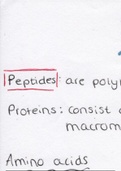 Peptides: are poly
Proteins: consist
macrom
Amino acids